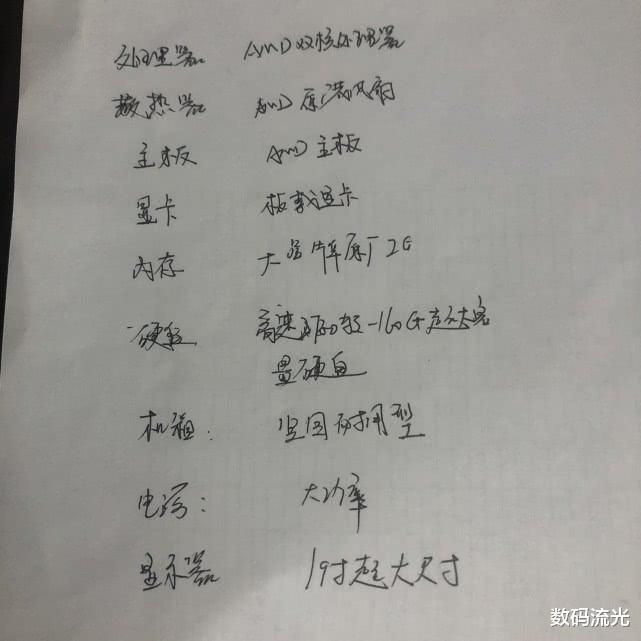 处理器 AMD双核处理器
散热器 AMD原装风扇
主板 AMD主板
显卡 板载显卡
内存 大品牌原厂2G
硬盘 高速7200转-160G超大容
量硬盘
机箱: 坚固耐用型
电源: 大功率
显示器 19寸超大尺寸
数码流光